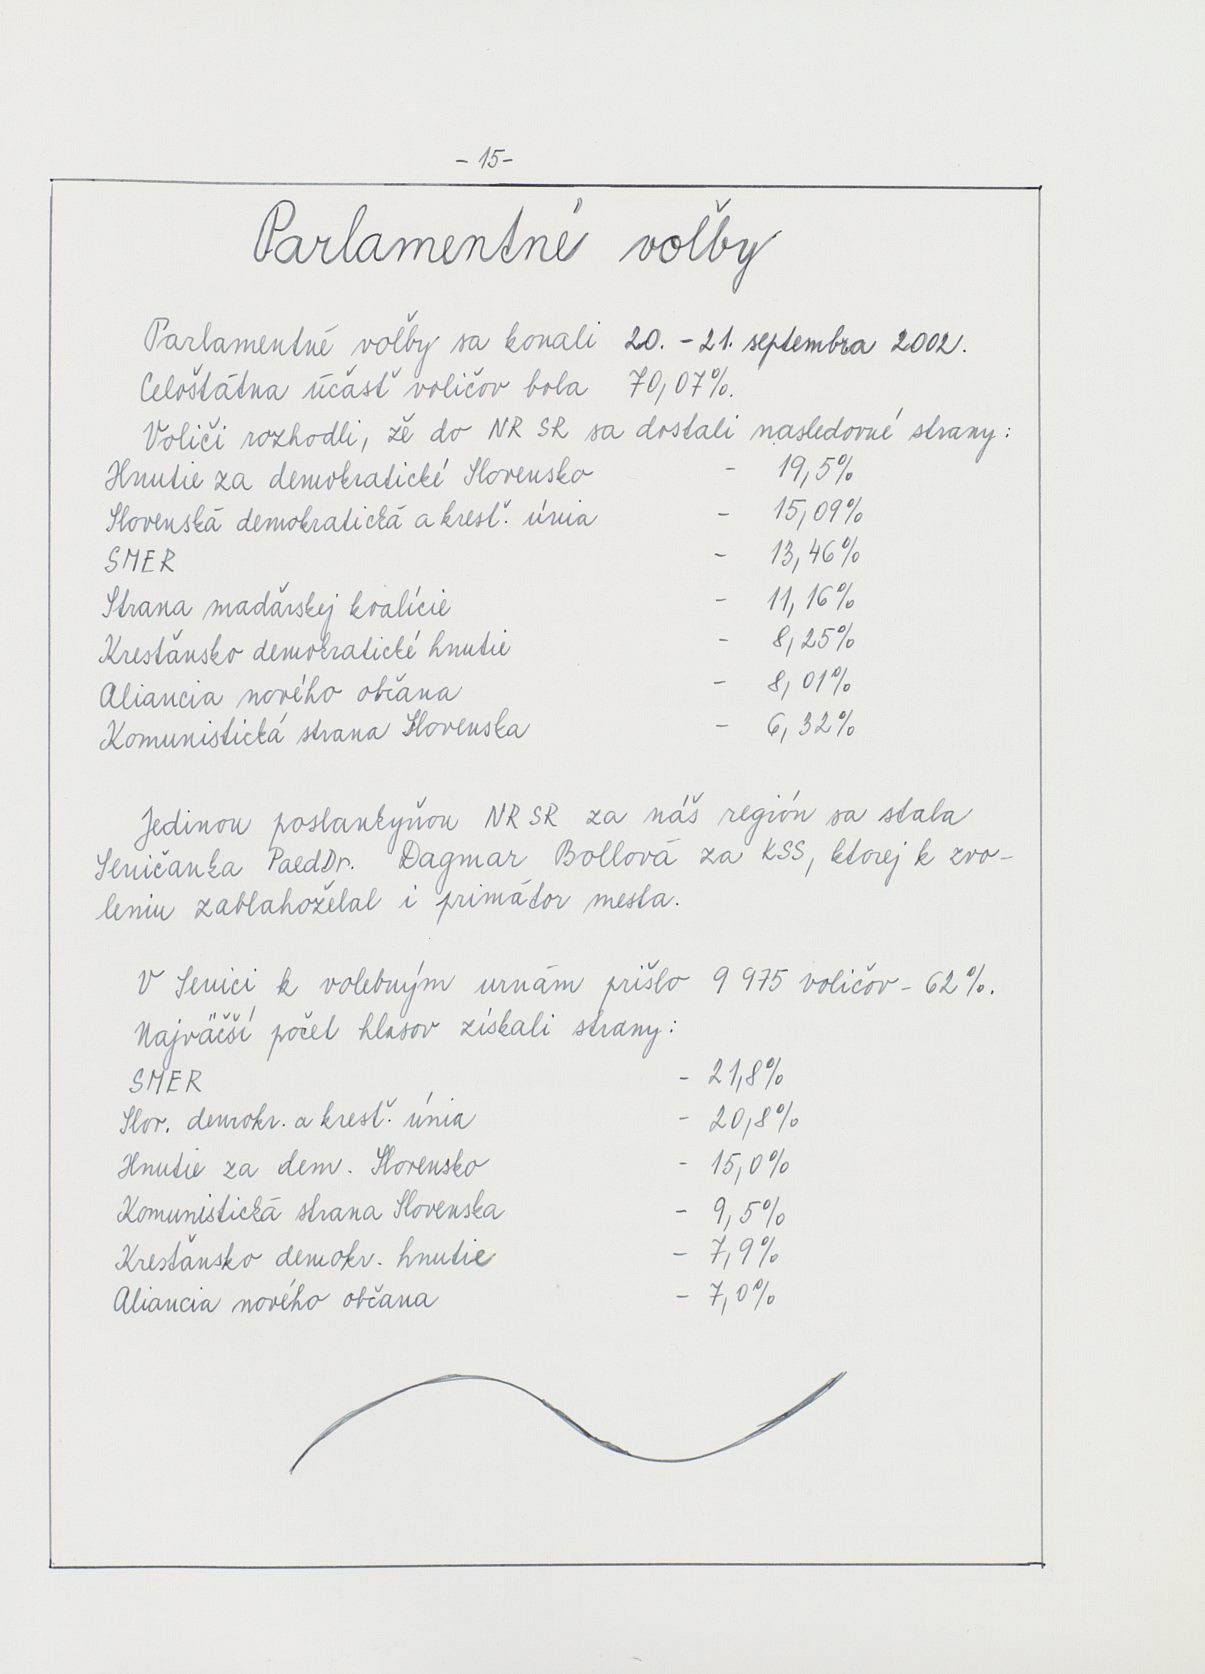 - 15-
Parlamentné voľby
Parlamentné voľby sa konali 20. - 21. septembra 2002.
Celoštátna účasť voličov bola 70,07%.
Voliči rozhodli, že do NR SR sa dostali nasledovné strany:
Hnutie za demokratické Slovensko - 19,5%
Slovenská demokratická a kresť. únia - 15,09%
SMER - 13,46%
Strana maďarskej koalície - 11,16%
Kresťansko demokratické hnutie - 8,25%
Aliancia nového občana - 8,01%
Komunistická strana Slovenska - 6,32%
Jedinou poslankyňou NR SR za náš región sa stala
Seničanka PaedDr. Dagmar Bollová za KSS, ktorej k zvo-
leniu zablahoželal i primátor mesta.
V Senici k volebným urnám prišlo 9 975 voličov - 62%.
Najväčší počet hlasov získali strany:
SMER - 21,8%
Slov. demokr. a kresť. únia - 20,8%
Hnutie za dem. Slovensko - 15,0%
Komunistická strana Slovenska - 9,5%
Kresťansko demokr. hnutie - 7,9%
Aliancia nového občana - 7,0%